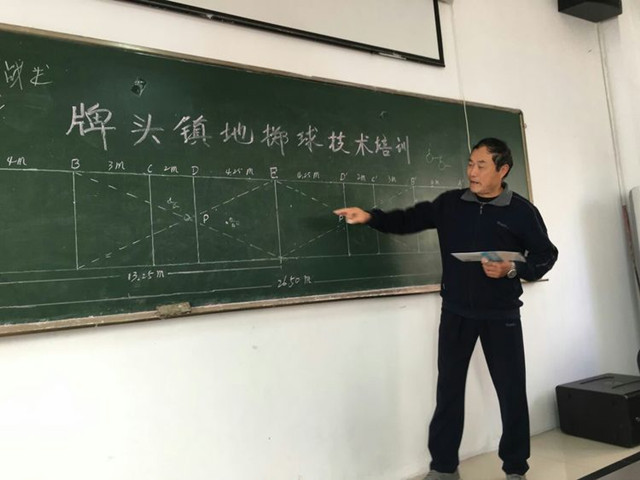 战术
牌头镇地掷球技术培训
4m B 3m C 2m D 4.25m E 4.25m D' 2m C' 3m B'
P
13.25m
26.50m